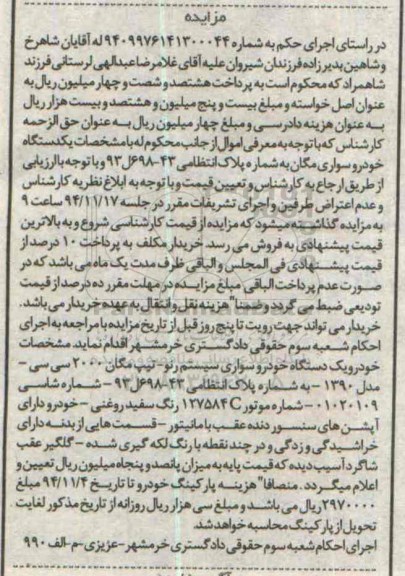 مزایده
در راستای اجرای حکم به شماره ۹۴۰۹۹۷۶۱۴۱۳۰۰۰۴۴ له آقایان شاهرخ
و شاهین بدیر زاده فرزندان شیروان علیه آقای غلامرضا عبدالهی لرستانی فرزند
شاهمراد که محکوم است به پرداخت هشتصد و شصت و چهار میلیون ریال به
عنوان اصل خواسته و مبلغ بیست و پنج میلیون و هشتصد و بیست هزار ریال
به عنوان هزینه دادرسی و مبلغ چهار میلیون ریال به عنوان حق الزحمه
کارشناس که با توجه به معرفی اموال از جانب محکوم له با مشخصات یکدستگاه
خودرو سواری مگان به شماره پلاک انتظامی ۴۳-۶۹۸ل۹۳ و با توجه با ارزیابی
از طریق ارجاع به کارشناس و تعیین قیمت و با توجه به ابلاغ نظریه کارشناس
و عدم اعتراض طرفین و اجرای تشریفات مقرر در جلسه ۹۴/۱۱/۱۷ ساعت ۹
به مزایده گذاشته میشود که مزایده از قیمت کارشناسی شروع و به بالاترین
قیمت پیشنهادی به فروش می رسد. خریدار مکلف به پرداخت ۱۰ درصد از
قیمت پیشنهادی فی المجلس و الباقی ظرف مدت یک ماه می باشد که در
صورت عدم پرداخت الباقی مبلغ مزایده در مهلت مقرر ده درصد از قیمت
تودیعی ضبط می گردد و ضمنا" هزینه نقل و انتقال به عهده خریدار می باشد.
خریدار می تواند جهت رویت تا پنج روز قبل از تاریخ مزایده با مراجعه به اجرای
احکام شعبه سوم حقوقی دادگستری خرمشهر اقدام نماید. مشخصات
خودرو یک دستگاه خودرو سواری سیستم رنو- تیپ مگان ۲۰۰۰ سی سی-
مدل ۱۳۹۰ - به شماره پلاک انتظامی ۴۳-۶۹۸ل۹۳ - شماره شاسی
۰۱۰۲۰۱۰۹ - شماره موتور ۱۲۷۵۸۴C رنگ سفید روغنی - خودرو دارای
آپشن های سنسور دنده عقب با مانیتور - قسمت هایی از بدنه دارای
خراشیدگی و زدگی و در چند نقطه با رنگ لکه گیری شده - گلگیر عقب
شاگرد آسیب دیده که قیمت پایه به میزان پانصد و پنجاه میلیون ریال تعیین و
اعلام میگردد. منضافا" هزینه پارکینگ خودرو تا تاریخ ۹۴/۱۱/۴ مبلغ
۲۹۷۰۰۰۰ ریال می باشد و مبلغ سی هزار ریال روزانه از تاریخ مذکور لغایت
تحویل از پارکینگ محاسبه خواهد شد.
اجرای احکام شعبه سوم حقوقی دادگستری خرمشهر-عزیزی-م-الف ۹۹۰